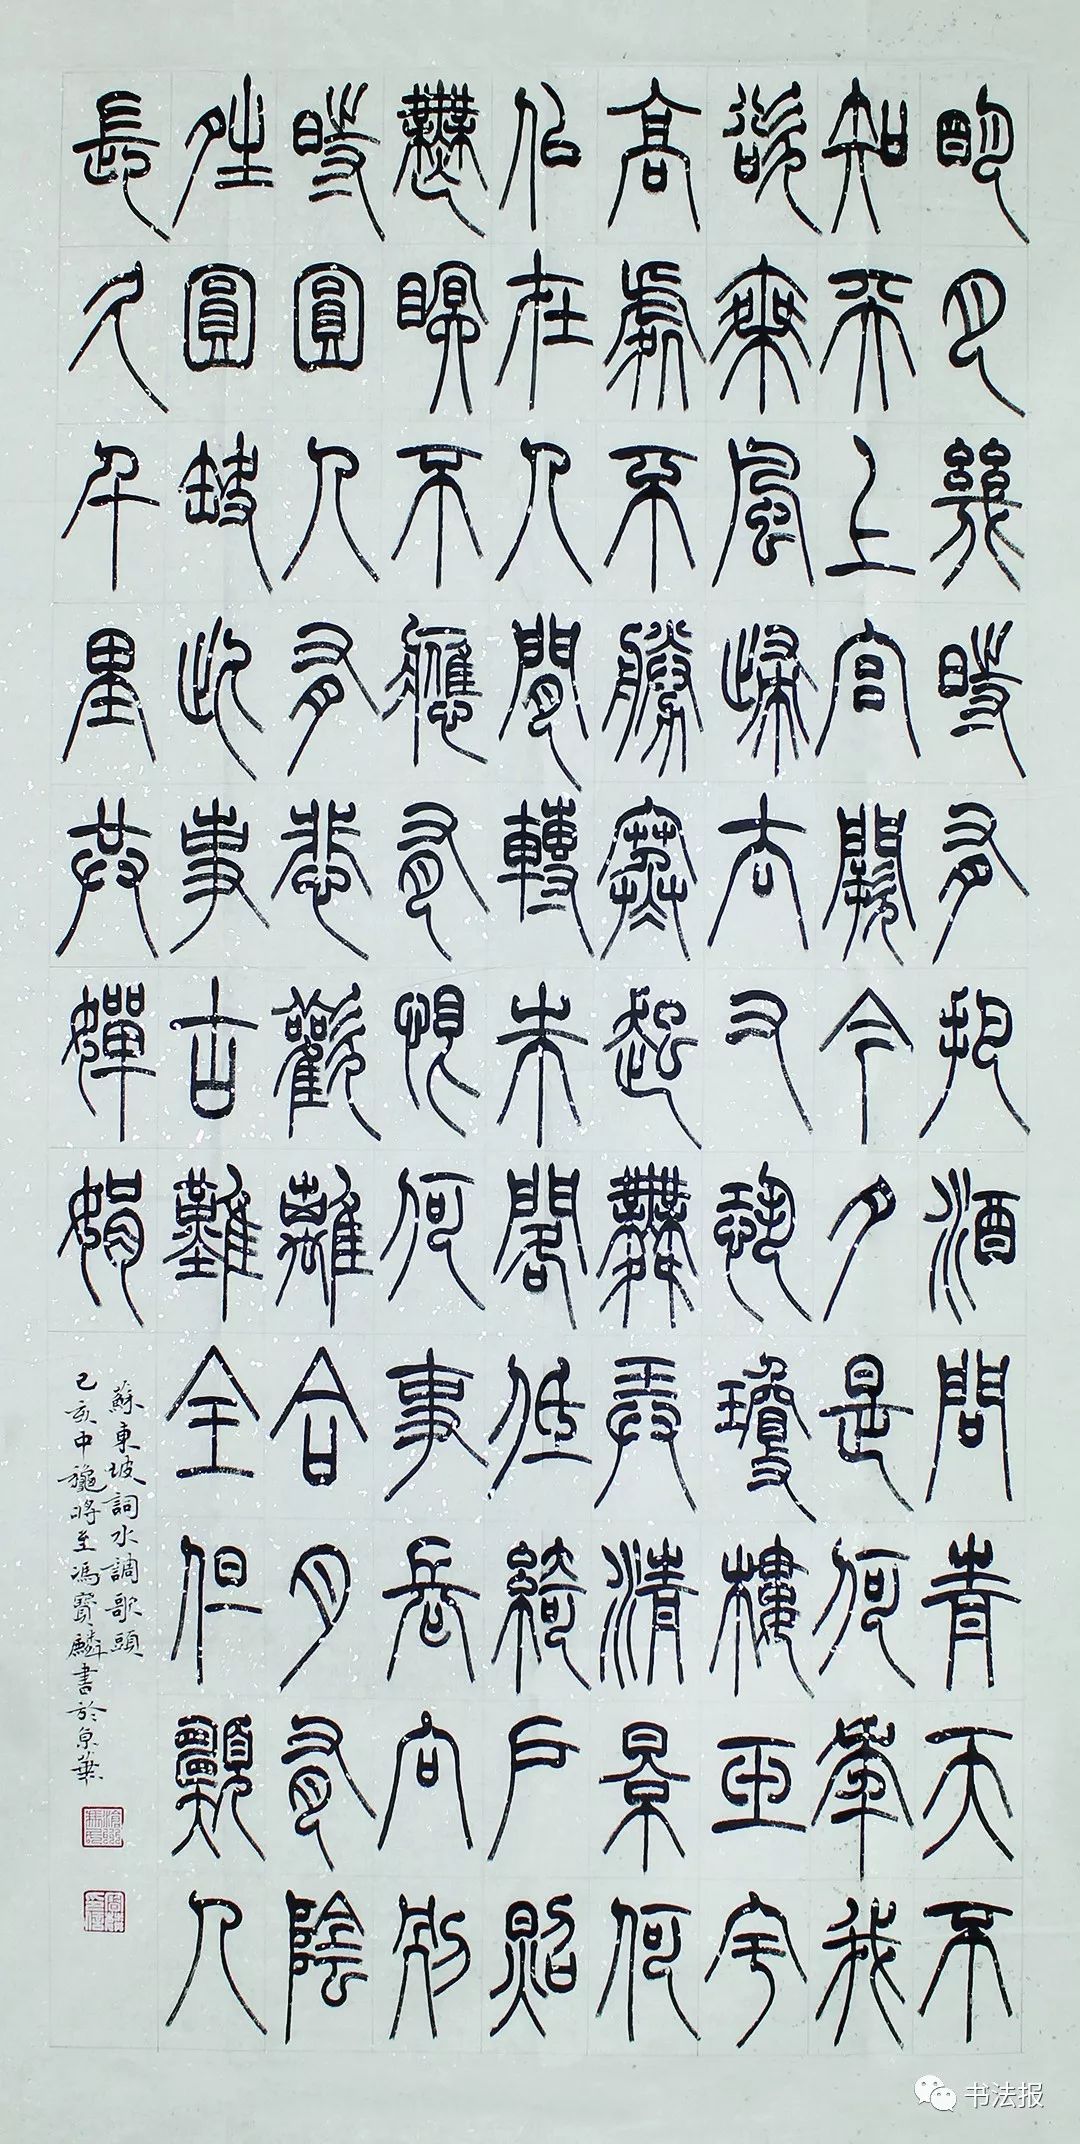 明月幾時有把酒問青天不
知天上宮闕今夕是何年我
欲乘風歸去又恐瓊樓玉宇
高處不勝寒起舞弄清景何
似在人間轉朱閣低綺戶照
無眠不應有恨何事長向別
時圓人有悲歡離合月有陰
夝圓缺此事古難全但願人
長久千里共嬋娟
蘇東坡詞水調歌頭
己亥中龝將至馮寶麟書於京華
书法报